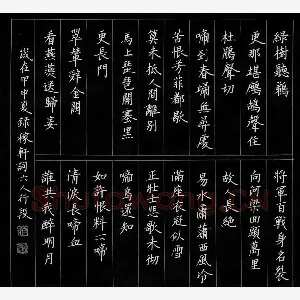 綠樹聽鵜鴂
更那堪鷓鴣聲住
杜鵑聲切
啼到春歸無尋處
苦恨芳菲都歇
算未抵人間離別
馬上琵琶關塞黑
更長門
翠輦辭金闕
看燕燕送歸妾
將軍百戰身名裂
向河梁回頭萬里
故人長絕
易水蕭蕭西風冷
滿座衣冠似雪
正壯士悲歌未徹
啼鳥還知
如許恨料不啼
清淚長啼血
誰共我醉明月
歲在甲申夏錄稼軒詞六人行